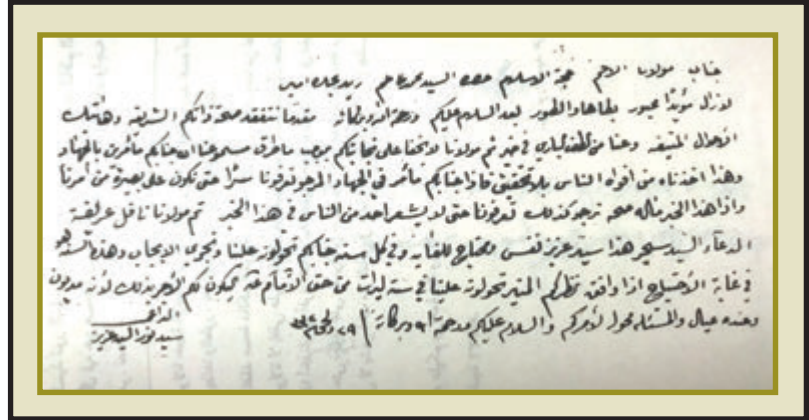 جناب مولانا الافخم حجة الاسلام السيد محمد كاظم زيد مجده امين
لازال مؤيداً بطاها والطور بعد السلام عليكم ورحمة الله وبركاته مقدماً نتفقد صحة ذاتكم الشريفة وهاتيك
الاحوال المنيفة وعنا من لطف الباري في خير ثم مولانا لا يخفا على جنابكم بموجب ما طرق مسامعنا ان جنابكم مأمرين بالجهاد
وهذا اخذناه من افواه الناس بلا تحقيق فاذا جنابكم مأمر في الجهاد المرجو تعرفونا سراً حتى نكون على بصيرة من امرنا
واذا هذا الخبر ماله صحة نرجو كذلك تعرفونا حتى لا يشعر احد من الناس في هذا الخبر ثم مولانا ناقل عريضة
الدعاء السيد هذا سيد عزيز نفس ومحتاج للغاية وفي كل سنة جنابكم تحولونه علينا ونجري الايجاب وهذه السنة هو
في غاية الأحتياج اذا وافق نظركم المنير تحولونه علينا في ستة ليرات من حق الامام يكون لكم الأجر بذلك لأنه مديون
وعنده عيال والمسئلة محول لأمركم والسلام عليكم ورحمة الله وبركاته ٢٩
الداعي
سيد نور السيد عزيز